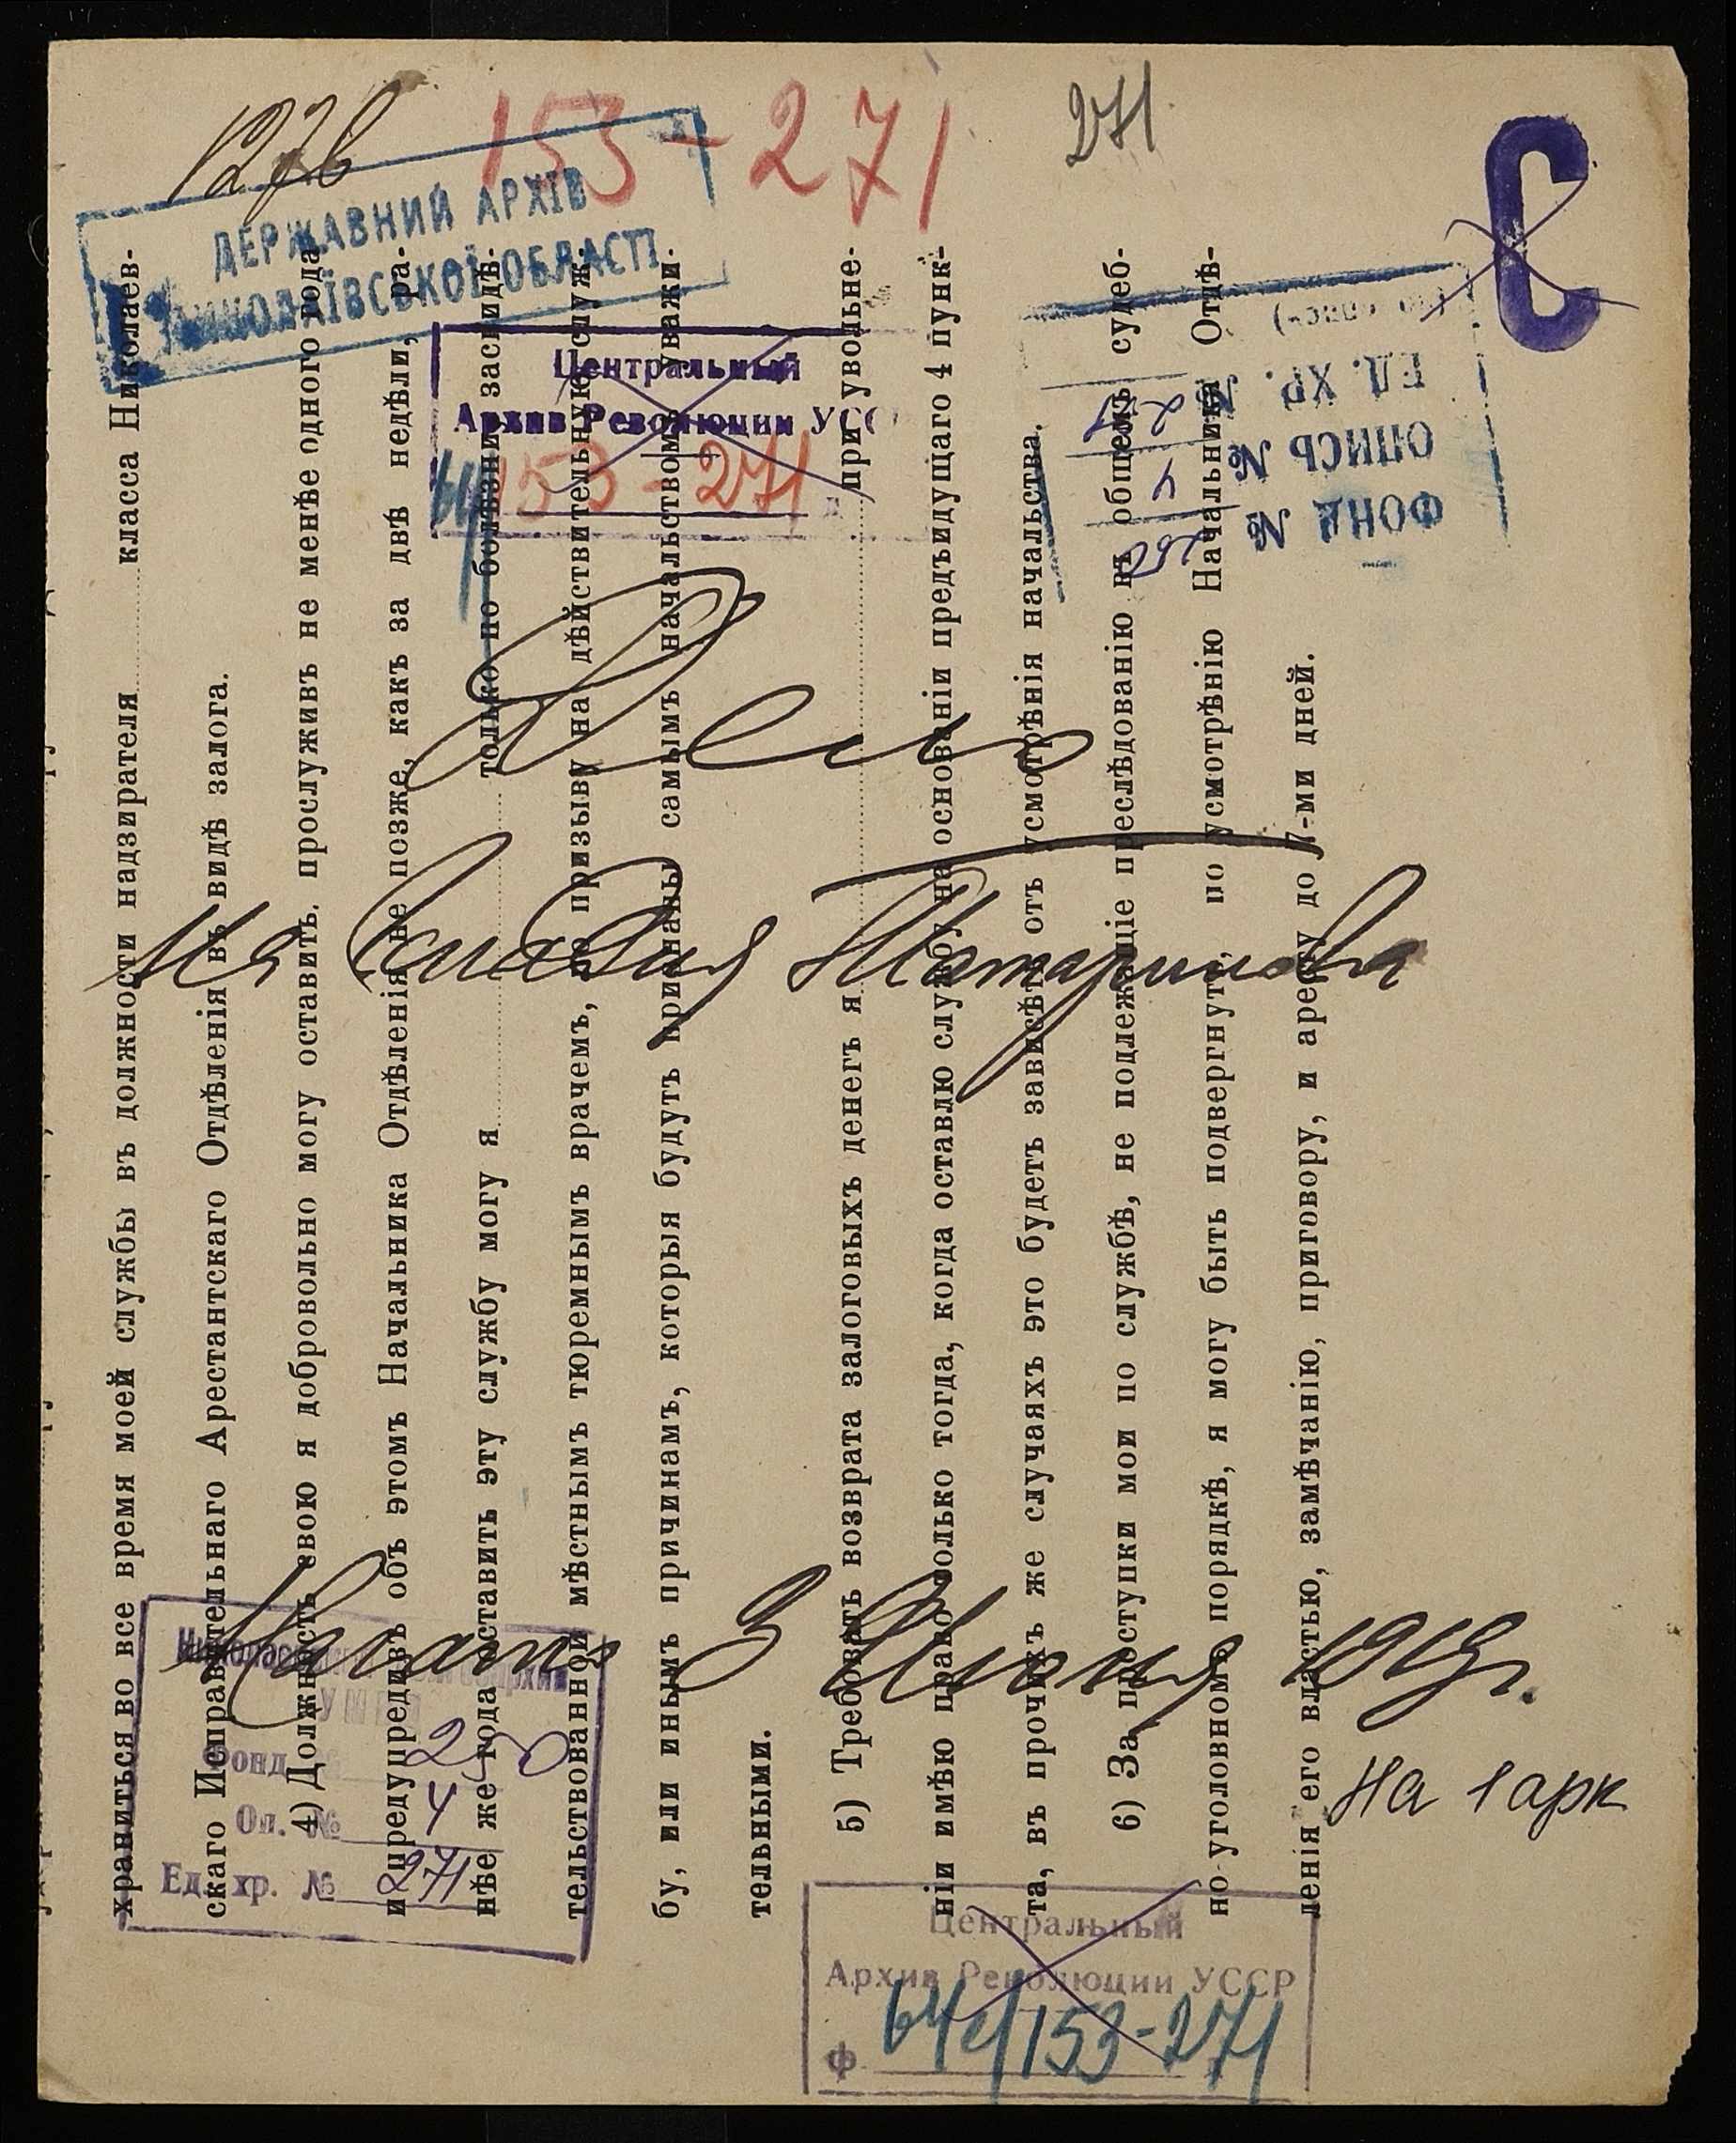 1276
153-271
271
ДЕРЖАВНИЙ АРХІВ
МИКОЛАЇВСЬКОЇ ОБЛАСТІ
Центральный
Архив Революции УСС
153-271
ФОНД № 250
ОПИСЬ № 4
ЕД. ХР. № 271
Дело
Татаринова
Начато 3 Июня 1919г.
На 1 арк
фонд 250
Оп. № 4
Ед. хр. № 271
Центральный
Архив Революции УССР
ф 64с/153-271
храниться во все время моей службы въ должности надзирателя класса Николаев-
скаго Исправительнаго Арестантскаго Отдѣленія въ видѣ залога.
4) Должность свою я добровольно могу оставить, прослуживъ не менѣе одного года
и предупредивъ объ этомъ Начальника Отдѣленія не позже, какъ за двѣ недѣли, ра-
нѣе же года оставить эту службу могу я только по болѣзни засвидѣ-
тельствованной мѣстнымъ тюремнымъ врачемъ, по призыву на дѣйствительную служ-
бу, или инымъ причинамъ, которыя будутъ признаны самымъ начальствомъ уважи-
тельными.
5) Требовать возврата залоговыхъ денегъ я при увольне-
ніи имѣю право только тогда, когда оставлю службу на основаніи предъидущаго 4 пунк-
та, въ прочихъ же случаяхъ это будетъ зависѣть отъ усмотрѣнія начальства.
6) За проступки мои по службѣ, не подлежащіе преслѣдованію въ общемъ судеб-
но-уголовномъ порядкѣ, я могу быть подвергнутъ, по усмотрѣнію Начальника Отдѣ-
ленія его властью, замѣчанію, приговору, и аресту до 7-ми дней.